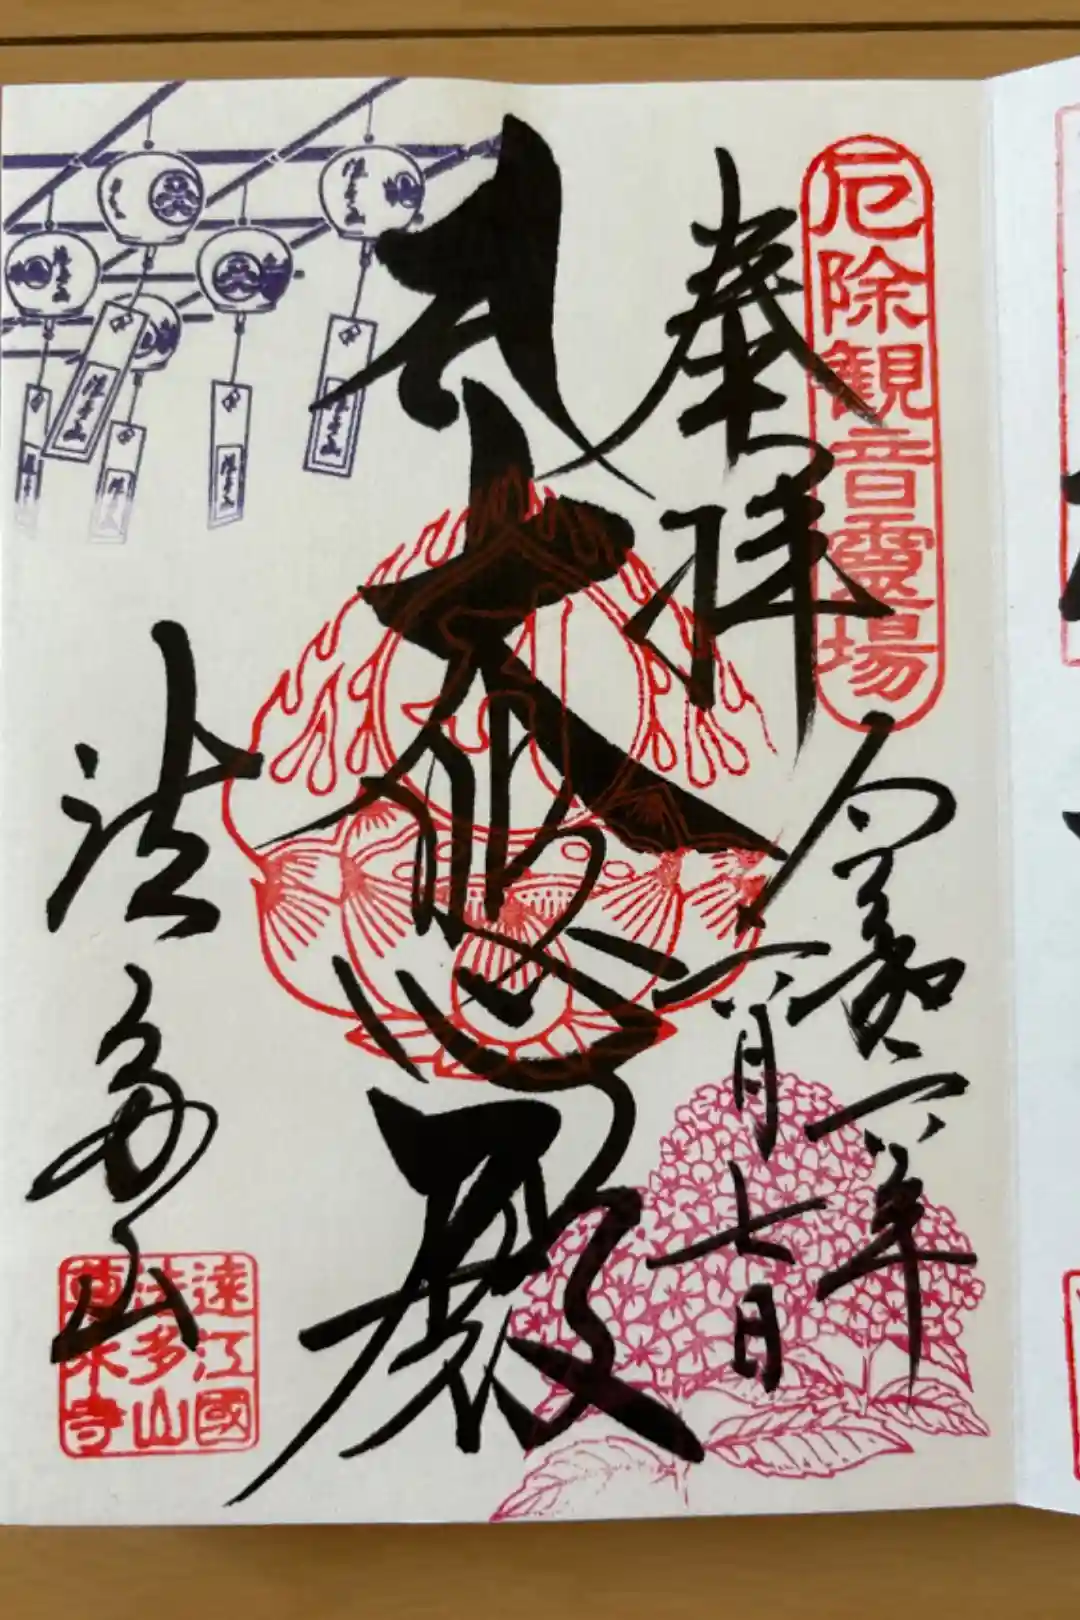 厄除観音靈場
奉拝
令和六年
六月七日
大悲殿
法多山
遠江國
法多山
尊永寺